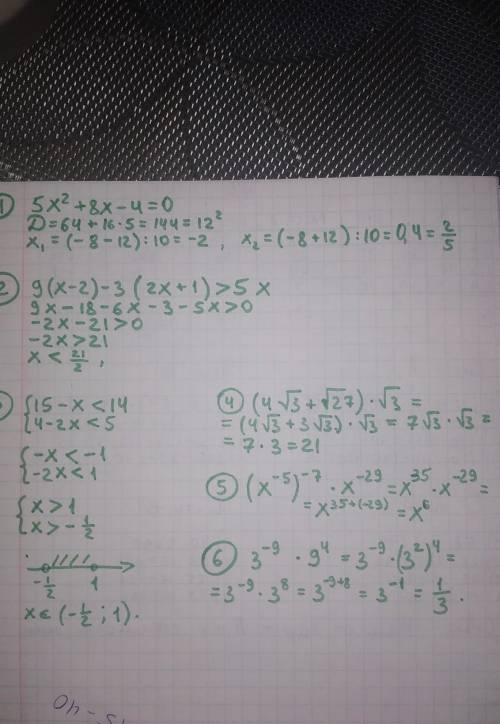 1 5x² + 8x - 4 = 0
D = 64 + 16·5 = 144 = 12²
x₁ = (-8 - 12) : 10 = -2 , x₂ = (-8 + 12) : 10 = 0,4 = 2/5
2 9(x-2) - 3 (2x+1) > 5x
9x - 18 - 6x - 3 - 5x > 0
-2x - 21 > 0
-2x > 21
x < 21/2 ,
{15 - x < 14
{4 - 2x < 5
{-x < -1
{-2x < 1
{x > 1
{x > -1/2
-1/2 1
x ∈ (-1/2 ; 1).
4 (4√3 + √27) · √3 =
= (4√3 + 3√3) · √3 = 7√3 · √3 =
= 7 · 3 = 21
5 (x⁻⁵)⁻⁷ · x⁻²⁹ = x³⁵ · x⁻²⁹ =
= x³⁵⁺⁽⁻²⁹⁾ = x⁶
6 3⁻⁹ · 9⁴ = 3⁻⁹ · (3²)⁴ =
= 3⁻⁹ · 3⁸ = 3⁻⁹⁺⁸ = 3⁻¹ = 1/3 .